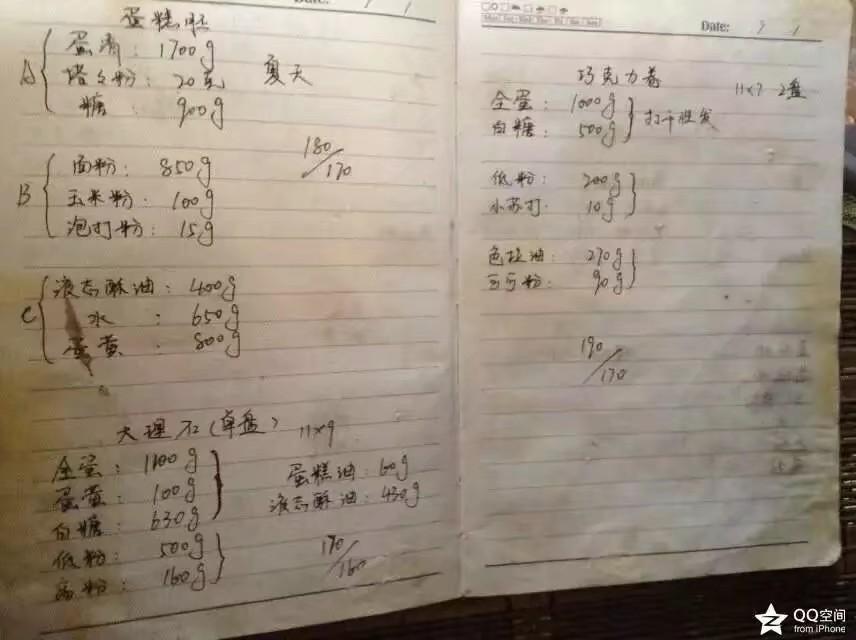 蛋糕胚
A
蛋清：1700g
塔塔粉：20克
糖：900g
夏天
B
面粉：850g
玉米粉：100g
泡打粉：15g
180/170
C
液态酥油：400g
水：650g
蛋黄：800g
大理石（单盘）11×9
全蛋：1100g
蛋黄：100g
白糖：630g
低粉：500g
高粉：160g
蛋糕油：60g
液态酥油：430g
170/160
Date:
巧克力卷
11×9 2盘
全蛋：1000g
白糖：500g
低粉：200g
小苏打：10g
色拉油：270g
可可粉：90g
190/170
QQ空间
from iPhone